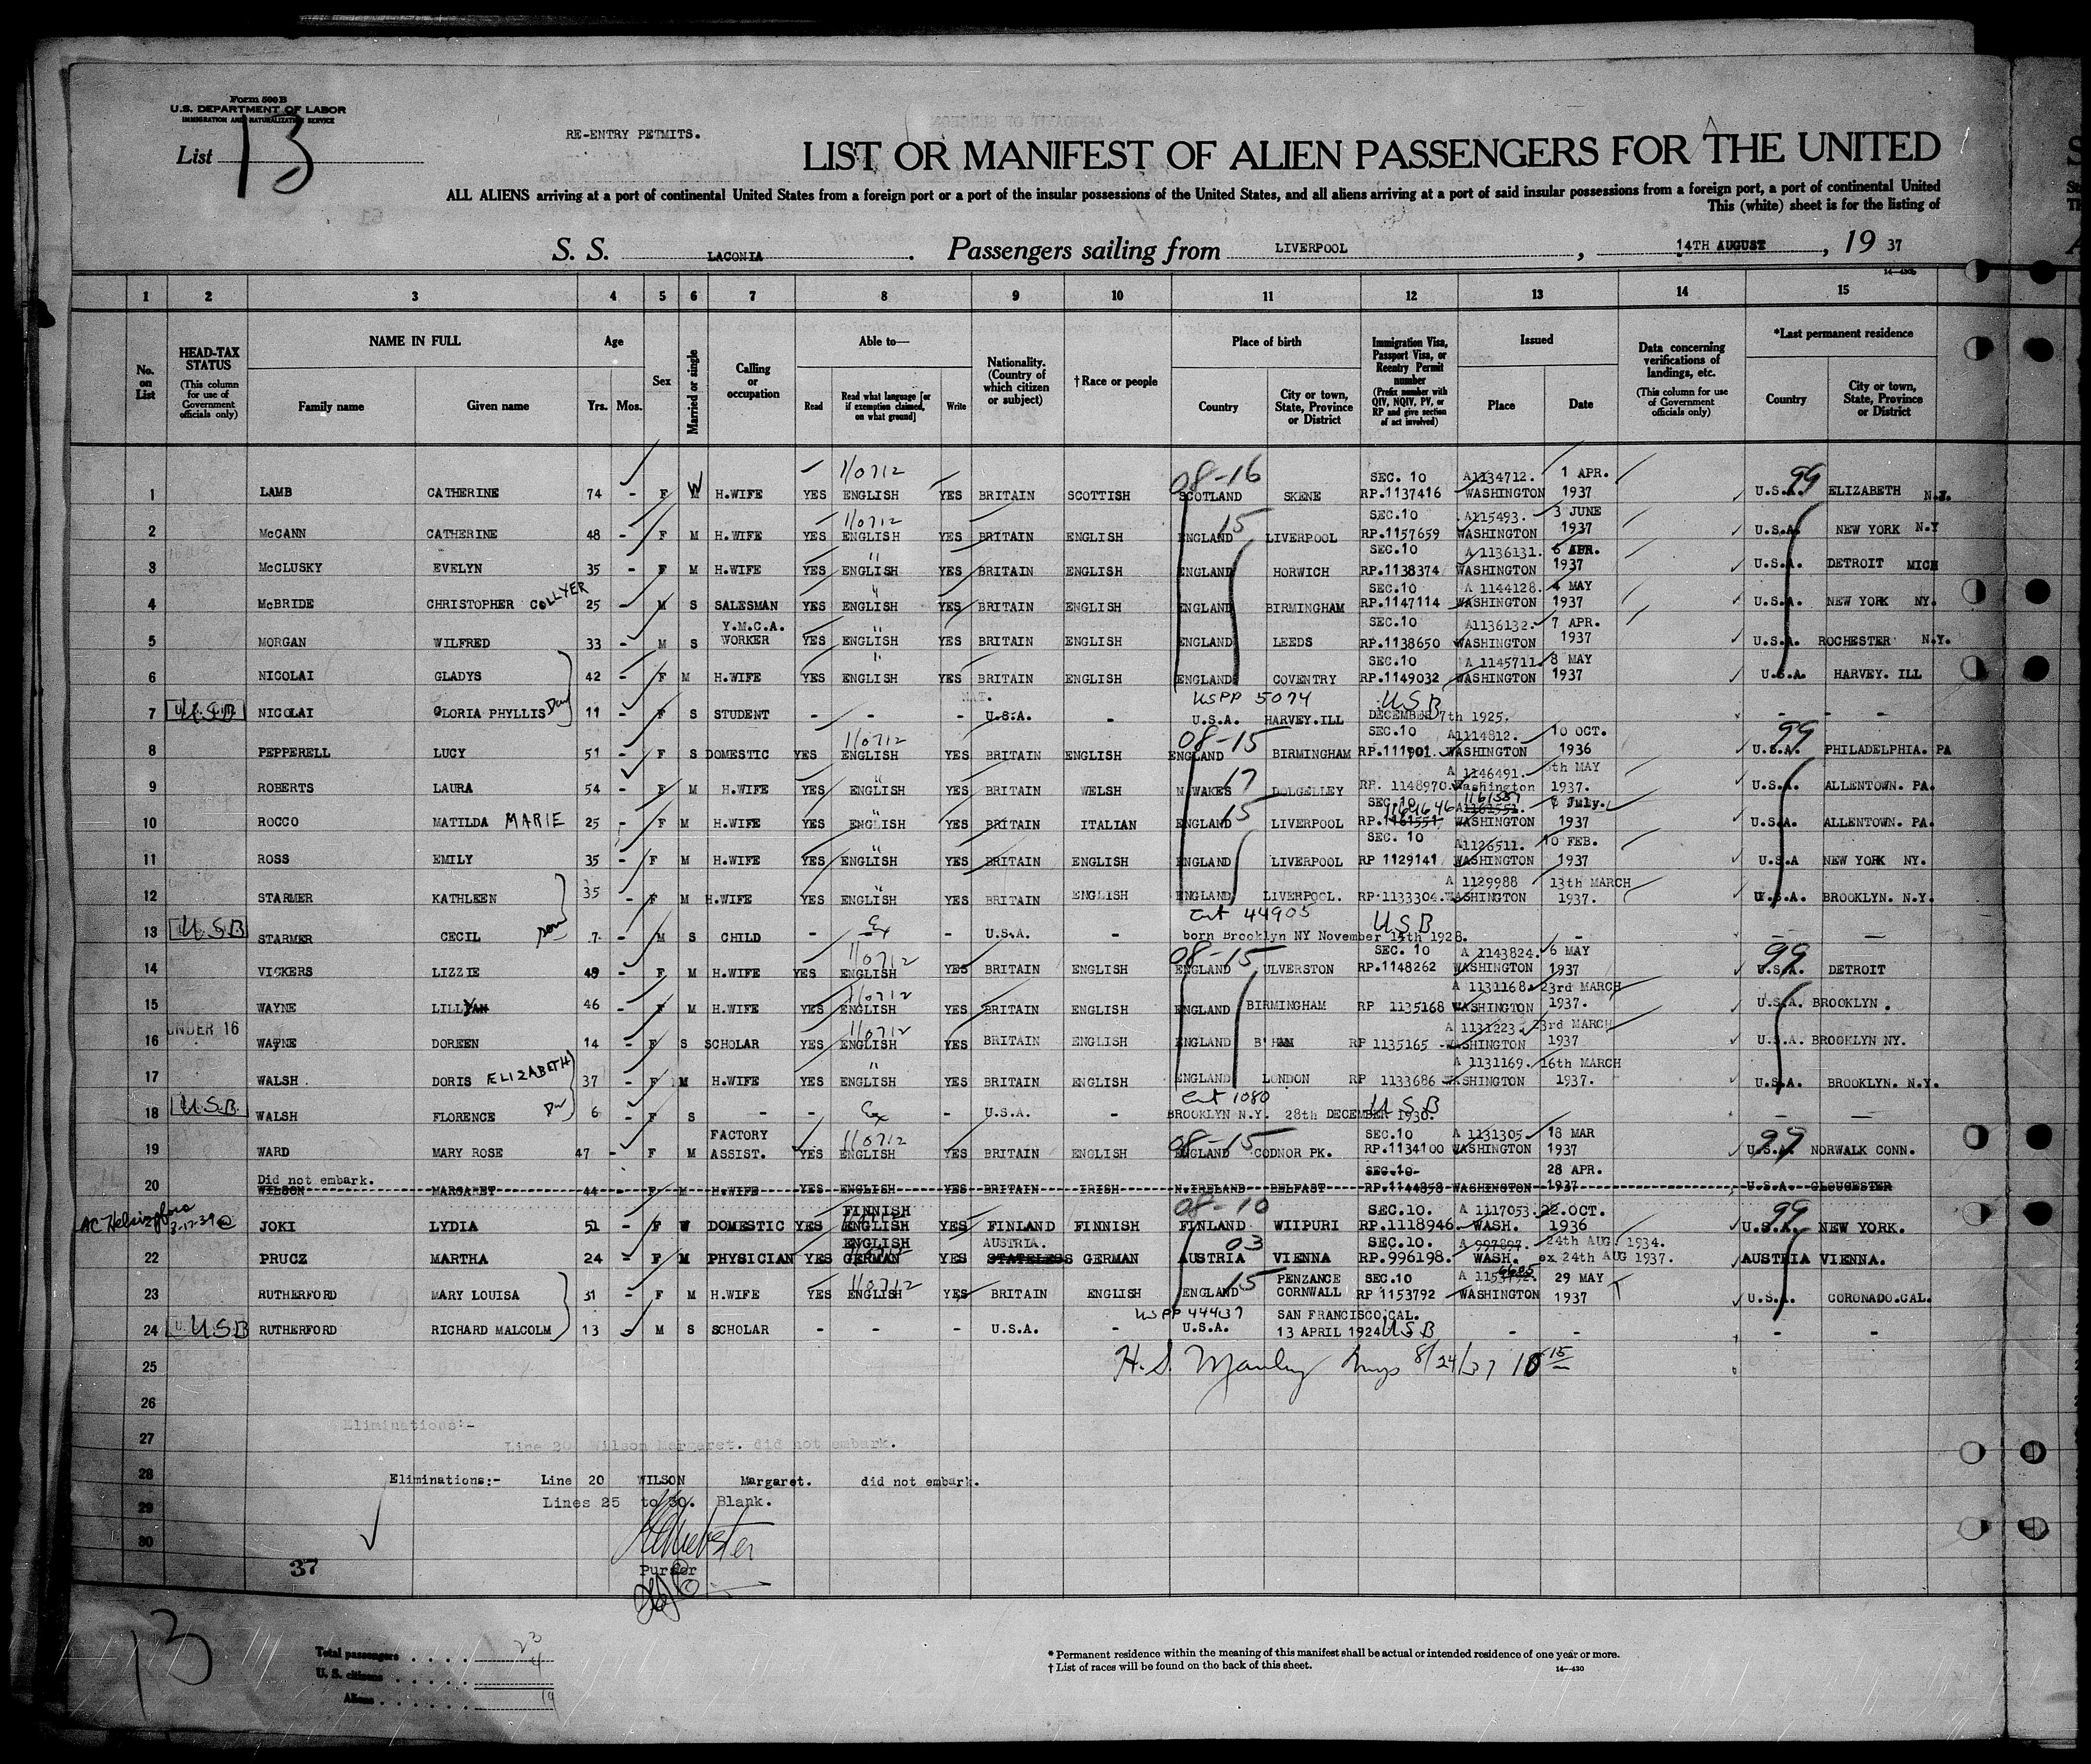 Form 500B
U.S. DEPARTMENT OF LABOR
IMMIGRATION AND NATURALIZATION SERVICE
List 13
RE-ENTRY PETMITS.
LIST OR MANIFEST OF ALIEN PASSENGERS FOR THE UNITED
ALL ALIENS arriving at a port of continental United States from a foreign port or a port of the insular possessions of the United States, and all aliens arriving at a port of said insular possessions from a foreign port, a port of continental United
This (white) sheet is for the listing of
S. S. LACONIA. Passengers sailing from LIVERPOOL, 14TH AUGUST, 19 37
1 2 3 4 5 6 7 8 9 10 11 12 13 14 15
No. on List
HEAD-TAX STATUS (This column for use of Government officials only)
NAME IN FULL
Family name Given name
Age
Yrs. Mos.
Sex
Married or single
Calling or occupation
Able to—
Read Read what language [or if exemption claimed, on what ground] Write
Nationality. (Country of which citizen or subject)
†Race or people
Place of birth
Country City or town, State, Province or District
Immigration Visa, Passport Visa, or Reentry Permit number (Prefix number with QIV, NQIV, PV, or RP and give section of act involved)
Issued
Place Date
Data concerning verifications of landings, etc. (This column for use of Government officials only)
*Last permanent residence
Country City or town, State, Province or District
110712 08-16 SEC. 10 A1134712. 1 APR. 99
1 LAMB CATHERINE 74 - F W H.WIFE YES ENGLISH YES BRITAIN SCOTTISH SCOTLAND SKENE RP.1137416 WASHINGTON 1937 U.S.A. ELIZABETH N.J.
110712 15 SEC.10 A115493. 3 JUNE
2 McCANN CATHERINE 48 - F M H.WIFE YES ENGLISH YES BRITAIN ENGLISH ENGLAND LIVERPOOL RP.1157659 WASHINGTON 1937 U.S.A. NEW YORK N.Y
" SEC.10 A 1136131. 6 APR.
3 McCLUSKY EVELYN 35 - F M H.WIFE YES ENGLISH YES BRITAIN ENGLISH ENGLAND HORWICH RP.1138374 WASHINGTON 1937 U.S.A. DETROIT MICH
" SEC.10 A 1144128. 4 MAY
4 McBRIDE CHRISTOPHER COLLYER 25 - M S SALESMAN YES ENGLISH YES BRITAIN ENGLISH ENGLAND BIRMINGHAM RP.1147114 WASHINGTON 1937 U.S.A. NEW YORK NY.
Y.M.C.A. " SEC.10 A1136132. 7 APR.
5 MORGAN WILFRED 33 - M S WORKER YES ENGLISH YES BRITAIN ENGLISH ENGLAND LEEDS RP.1138650 WASHINGTON 1937 U.S.A. ROCHESTER N.Y.
" SEC.10 A 1145711. 3 MAY
6 NICOLAI GLADYS 42 - F M H.WIFE YES ENGLISH YES BRITAIN ENGLISH ENGLAND COVENTRY RP.1149032 WASHINGTON 1937 U.S.A. HARVEY. ILL
NAT. USPP 5074 USB
7 USB NICOLAI GLORIA PHYLLIS Dau 11 - F S STUDENT - - - U.S.A. - U.S.A. HARVEY.ILL DECEMBER 7th 1925. - -
110712 08-15 SEC.10 A1114812. 10 OCT. 99
8 PEPPERELL LUCY 51 - F S DOMESTIC YES ENGLISH YES BRITAIN ENGLISH ENGLAND BIRMINGHAM RP.111901. WASHINGTON 1936 U.S.A. PHILADELPHIA. PA
" 17 A 1146491. th MAY
9 ROBERTS LAURA 54 - F M H.WIFE YES ENGLISH YES BRITAIN WELSH N WAKES DOLGELLEY RP. 1148970. Washington 1937. U.S.A. ALLENTOWN. PA.
" 15 SEC.10 July.
10 ROCCO MATILDA MARIE 25 - F M H.WIFE YES ENGLISH YES BRITAIN ITALIAN ENGLAND LIVERPOOL RP.1161551 WASHINGTON 1937 U.S.A. ALLENTOWN. PA.
" SEC. 10 A1126511. 10 FEB.
11 ROSS EMILY 35 - F M H.WIFE YES ENGLISH YES BRITAIN ENGLISH ENGLAND LIVERPOOL RP 1129141 WASHINGTON 1937 U.S.A NEW YORK NY.
" A 1129988 13th MARCH
12 STARMER KATHLEEN 35 - F M H.WIFE YES ENGLISH YES BRITAIN ENGLISH ENGLAND LIVERPOOL. RP 1133304. WASHINGTON 1937. U.S.A. BROOKLYN. N.Y.
Cert 44905 USB
13 USB STARMER CECIL son 7 - M S CHILD - Ex - U.S.A. - born Brooklyn NY November 14th 1928. - -
110712 08-15 SEC. 10 A 1143824. 6 MAY 99
14 VICKERS LIZZIE 49 - F M H.WIFE YES ENGLISH YES BRITAIN ENGLISH ENGLAND ULVERSTON RP.1148262 WASHINGTON 1937 U.S.A. DETROIT
110712 A 1131168. 23rd MARCH
15 WAYNE LILLYAN 46 - F M H.WIFE YES ENGLISH YES BRITAIN ENGLISH ENGLAND BIRMINGHAM RP 1135168 WASHINGTON 1937. U.S.A. BROOKLYN.
UNDER 16 110712 A 1131223. 23rd MARCH
16 WAYNE DOREEN 14 - F S SCHOLAR YES ENGLISH YES BRITAIN ENGLISH ENGLAND B'HAM RP 1135165 WASHINGTON 1937 U.S.A. BROOKLYN NY.
" A 1131169. 16th MARCH
17 WALSH DORIS ELIZABETH 37 - F M H.WIFE YES ENGLISH YES BRITAIN ENGLISH ENGLAND LONDON RP 1133686 WASHINGTON 1937. U.S.A. BROOKLYN. N.Y.
Cert 1080 USB
18 U.S.B. WALSH FLORENCE Da 6 - F S - - Ex - U.S.A. - BROOKLYN N.Y. 28th DECEMBER 1930. - -
FACTORY 110712 08-15 SEC.10 A 1131305. 18 MAR 99
19 WARD MARY ROSE 47 - F M ASSIST. YES ENGLISH YES BRITAIN ENGLISH ENGLAND CODNOR PK. RP.1134100 WASHINGTON 1937 U.S.A. NORWALK CONN.
Did not embark. SEC.10 28 APR.
20 WILSON MARGARET 44 - F M H.WIFE YES ENGLISH YES BRITAIN IRISH N.IRELAND BELFAST RP.1144858 WASHINGTON 1937 U.S.A. GLOUCESTER
AC Helsingfors 3-12-39 FINNISH 08-10 SEC.10. A 1117053. 22.OCT. 99
JOKI LYDIA 51 - F W DOMESTIC YES ENGLISH YES FINLAND FINNISH FINLAND WIIPURI RP.1118946. WASH. 1936 U.S.A. NEW YORK.
ENGLISH AUSTRIA. 03 SEC.10. A 997897. 24th AUG. 1934.
22 PRUCZ MARTHA 24 - F M PHYSICIAN YES GERMAN YES STATELESS GERMAN AUSTRIA VIENNA RP.996198. WASH. ex 24th AUG 1937. AUSTRIA VIENNA.
110712 15 PENZANCE SEC.10 A 29 MAY
23 RUTHERFORD MARY LOUISA 31 - F M H.WIFE YES ENGLISH YES BRITAIN ENGLISH ENGLAND CORNWALL RP 1153792 WASHINGTON 1937 U.S.A. CORONADO.CAL.
USPP 444437 SAN FRANCISCO,CAL.
24 USB RUTHERFORD RICHARD MALCOLM 13 - M S SCHOLAR - - - U.S.A. - U.S.A. 13 APRIL 1924 USB - - - -
25 H. S. Manley Insp 8/24/37 10 15
26
Eliminations:-
27 Line 20 Wilson Margaret. did not embark.
28 Eliminations:- Line 20 WILSON Margaret. did not embark.
29 Lines 25 to 30. Blank.
30
37 Purser
13
Total passengers 23
U. S. citizens 4
Aliens 19
* Permanent residence within the meaning of this manifest shall be actual or intended residence of one year or more.
† List of races will be found on the back of this sheet. 14—430